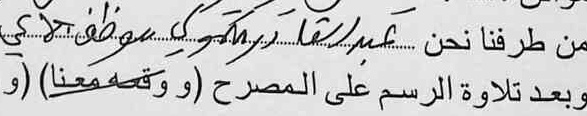 من طرفنا نحن عبد القادر
وبعد تلاوة الرسم على المصرح (و وقعه معنا) (و